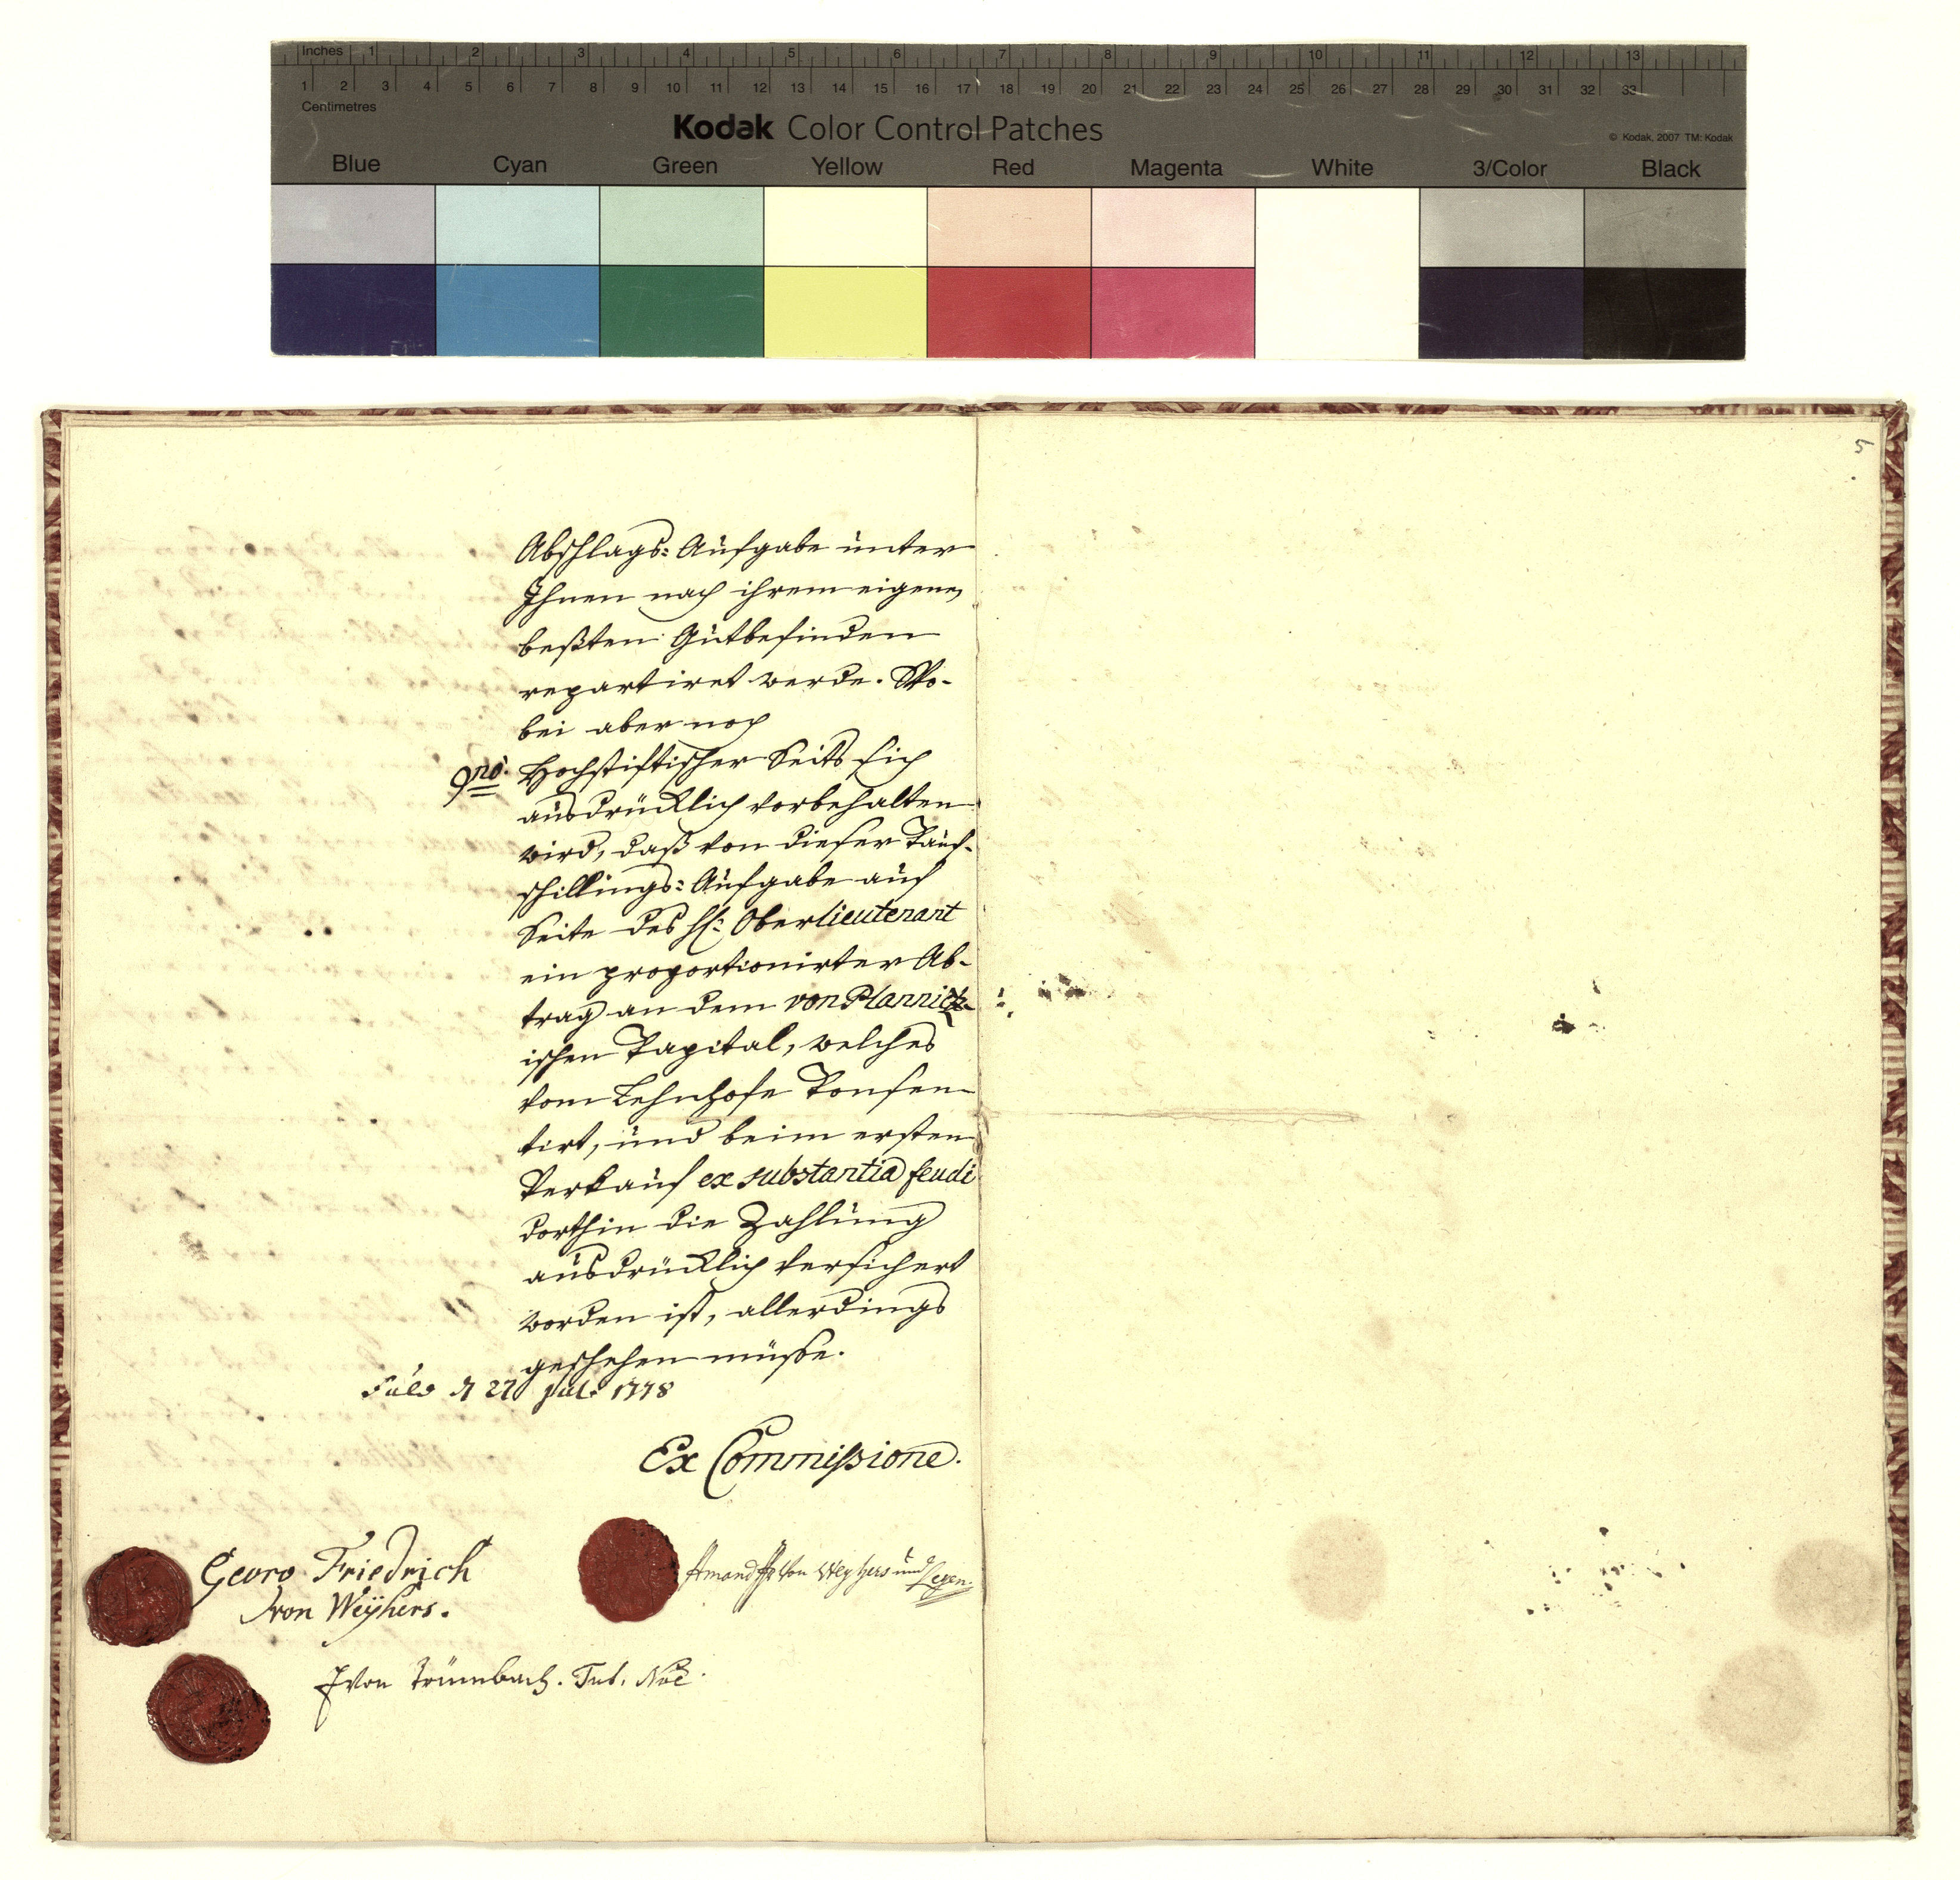 Inches 1 2 3 4 5 6 7 8 9 10 11 12 13
1 2 3 4 5 6 7 8 9 10 11 12 13 14 15 16 17 18 19 20 21 22 23 24 25 26 27 28 29 30 31 32 33
Centimetres
Kodak Color Control Patches
© Kodak, 2007 TM: Kodak
Blue Cyan Green Yellow Red Magenta White 3/Color Black
5
Abschlags: Aufgabe unter
Ihnen nach ihrem eigenen
beßten Gutbefinden
repartiret werde. Wo-
bei aber noch
9no. Hochstiftischer Seits sich
ausdrücklich vorbehalten
wird, daß von dieser Kauf-
schillings: Aufgabe auf
Seite des H: Oberlieutenant
ein proportionirter Ab-
trag an dem von Plannitz-
ischen Kapital, welches
vom Lehnhofe Konsen-
tirt, und beim ersten
Verkauf ex substantia feudi
dorthin die Zahlung
ausdrücklich versichert
worden ist, allerdings
geschehen müße.
Fuld d 27 Jul. 1778
Ex Commissione.
Georg Friedrich
von Weyhers.
Amand von Weyhers und Leyen.
von Trümbach. Tut. Noe.